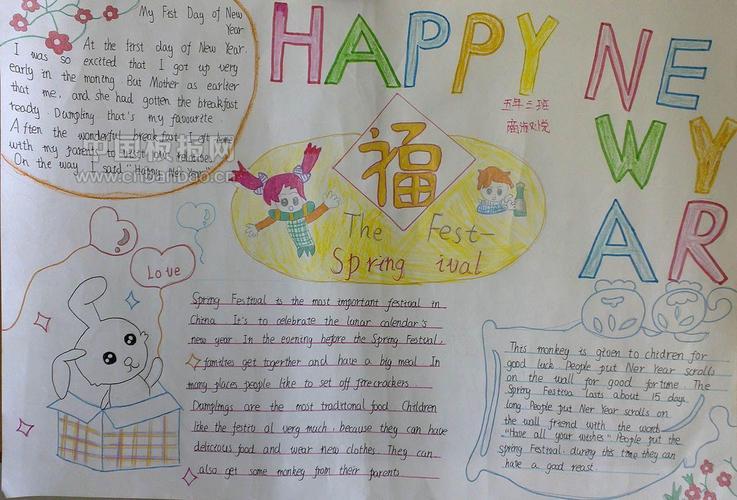 My Fist Day of New
Year
At the first day of New Year.
I was so excited that I got up very
early in the moning. But Mother as earlier
that me, and she had gotten the breakfast
ready. Dumpling that's my favourite.
After the wonderful breakfast I left home
with my parents to visit my relatives.
On the way I said "Happy New Year"
中国板报网
www.cnbanbao.cn
HAPPY NEW
YEAR
五年三班
福
The Fest-
Spring ival
Love
Spring Festival is the most important festival in
China It's to celebrate the lunar calendar's
new year In the evening before the Spring Festival,
families get together and have a big meal In
many places people like to set off firecrackers
Dumplings are the most traditional food Children
like the festival very much, because they can have
delicious food and wear new clothes They can
also get some monkey from their parents
This monkey is given to chidren for
good luck People put Ner Year scrolls
on the wall for good fortune The
Spring Festiva lasts about 15 days
long People put Ner Year scrolls on
the wall friend with the worth
"Have all your wishes" People put the
Spring Festival, during this time they can
have a good reast